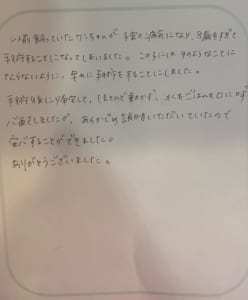 以前飼っていたワンちゃんが子宮の病気になり、8歳をすぎて
手術することになってしまいました。この子にはそのようなことに
ならないように、早めに手術をすることにしました。
手術後に帰宅して、ほとんど動かず、水もごはんも口にせず
心配しましたが、あらかじめ説明をいただいていたので
安心することができました。
ありがとうございました。